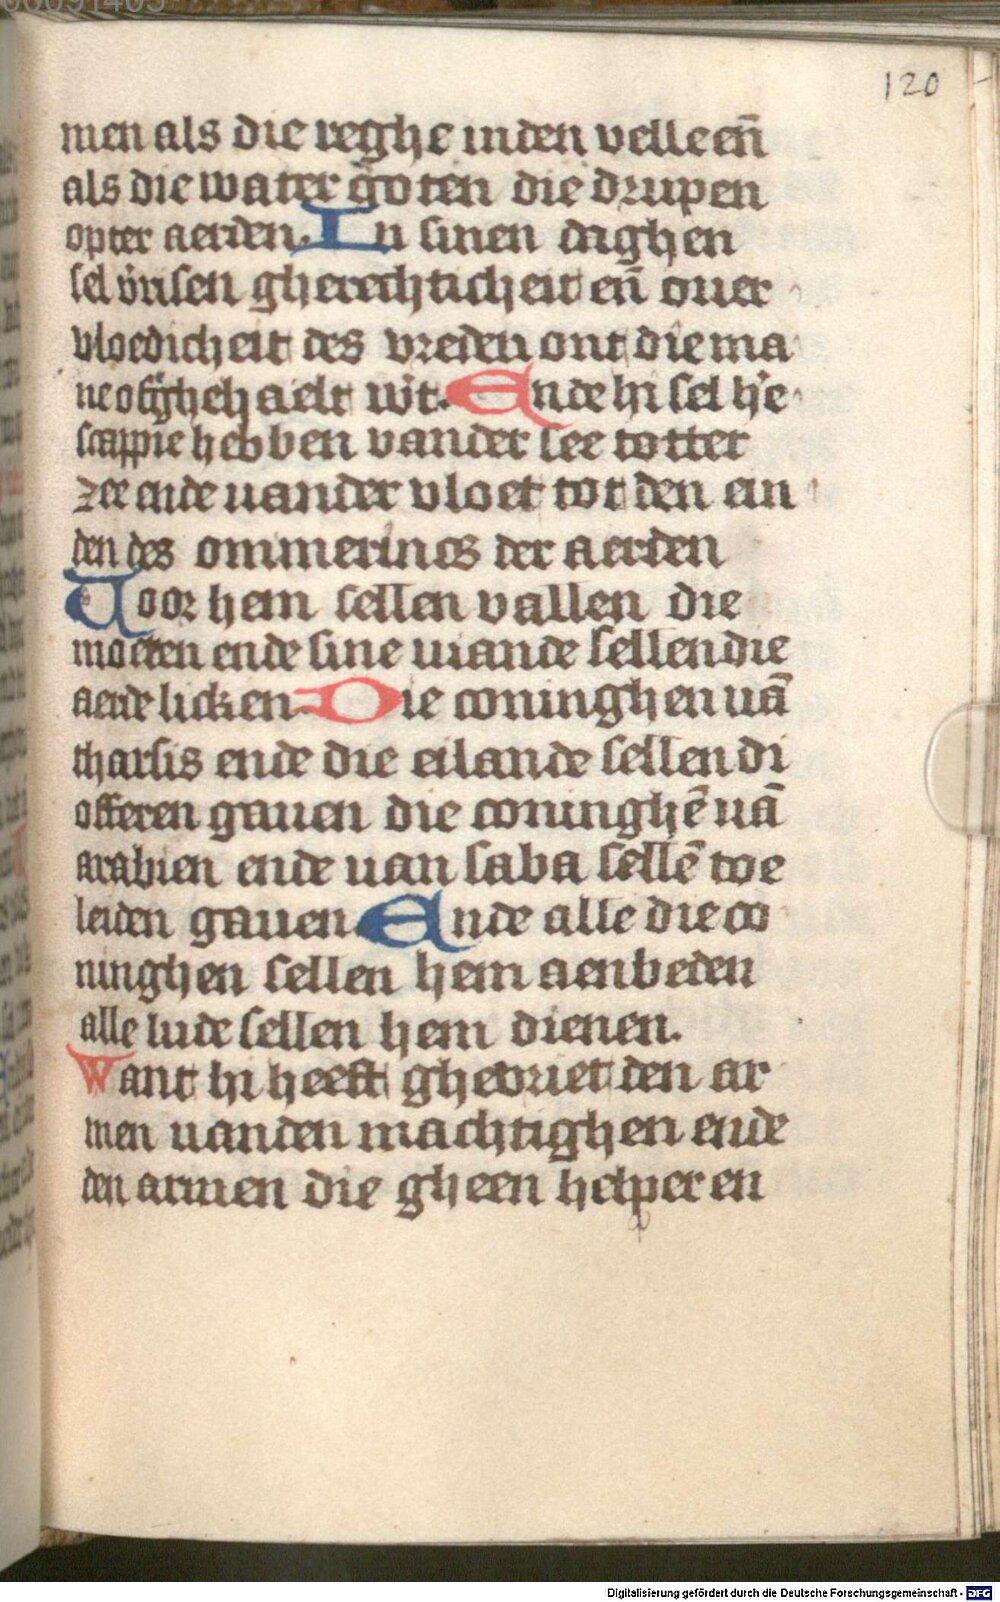 120
men als die reghe inden velle en̄
als die water goten die drupen
opter aerden. In sinen daghen
sel vrisen gherechticheit en̄ ouer
vloedicheit des vreden ont die ma
ne ofghehaelt wt. Ende hi sel he
scappie hebben vander see totter
zee ende uander vloet tot den ein
den des ommerincs der aerden
Uoor hem sellen vallen die
moeren ende sine uiande sellen die
aerde licken. Die coninghen uā
tharsis ende die eilande sellen di
offeren gauen die coninghē uā
arabien ende uan saba sellē toe
leiden gauen. Ende alle die co
ninghen sellen hem aenbeden
alle lude sellen hem dienen.
Want hi heeft ghevriet den ar
men uanden machtighen ende
den armen die gheen helper en
Digitalisierung gefördert durch die Deutsche Forschungsgemeinschaft - DFG